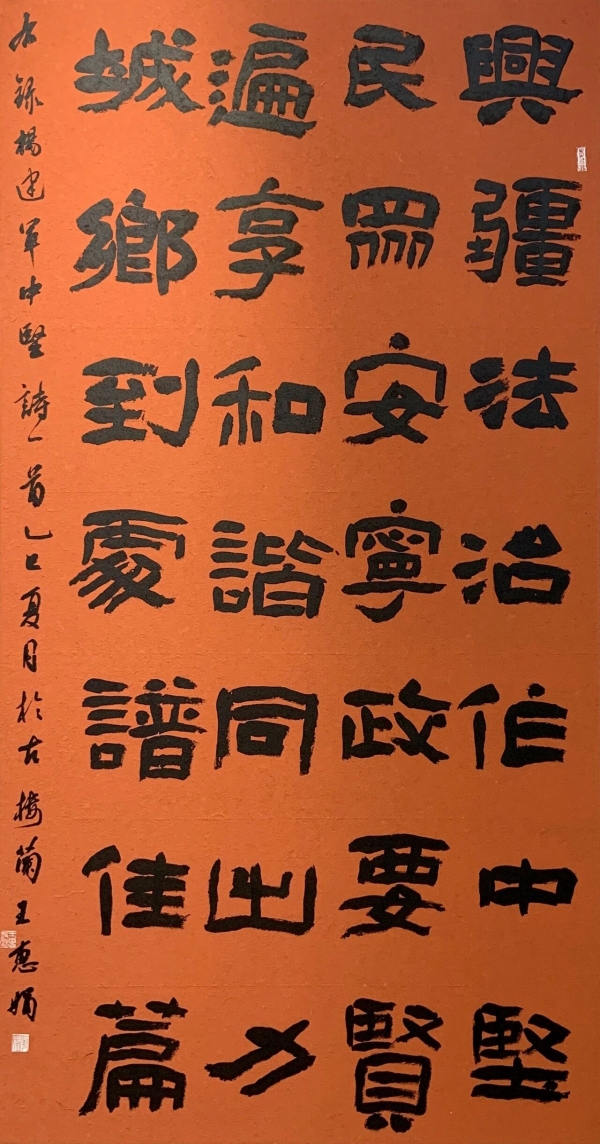 興疆法治作中堅
民眾安寧政要賢
遍享和諧同出力
城鄉到處譜佳篇
右錄楊建軍中堅詩一首乙巳夏月於古樓蘭王惠娟